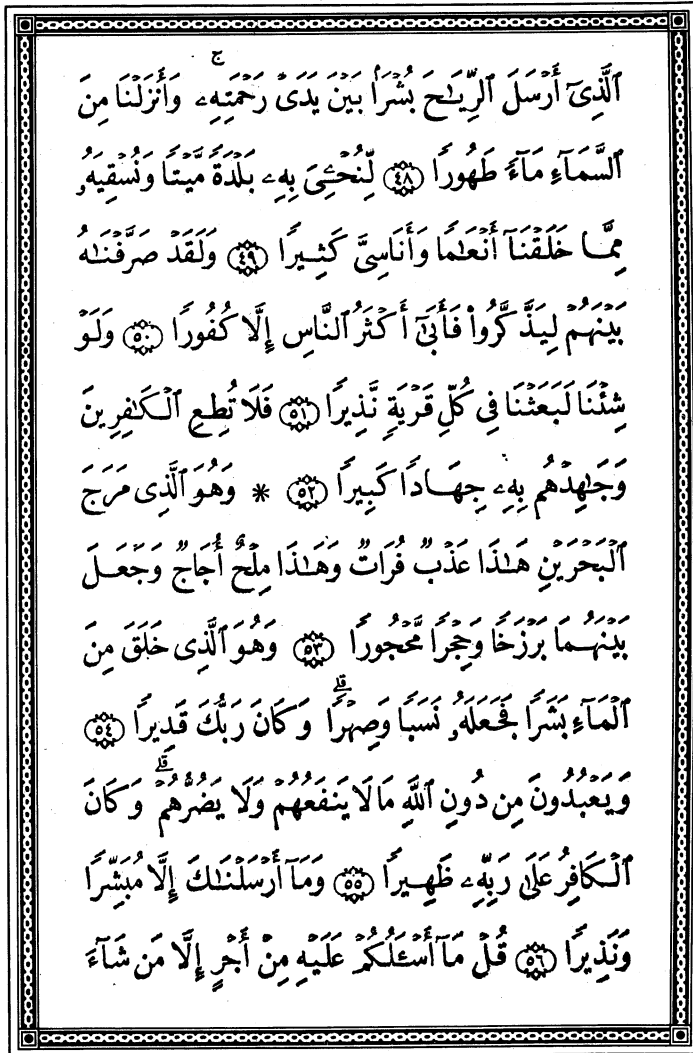 ٱلَّذِىٓ أَرْسَلَ ٱلرِّيَـٰحَ بُشْرَۢا بَيْنَ يَدَىْ رَحْمَتِهِۦ ۚ وَأَنزَلْنَا مِنَ
ٱلسَّمَآءِ مَآءً طَهُورًا ﴿٤٨﴾ لِّنُحْـِۧىَ بِهِۦ بَلْدَةً مَّيْتًا وَنُسْقِيَهُۥ
مِمَّا خَلَقْنَآ أَنْعَـٰمًا وَأَنَاسِىَّ كَثِيرًا ﴿٤٩﴾ وَلَقَدْ صَرَّفْنَـٰهُ
بَيْنَهُمْ لِيَذَّكَّرُوا۟ فَأَبَىٰٓ أَكْثَرُ ٱلنَّاسِ إِلَّا كُفُورًا ﴿٥٠﴾ وَلَوْ
شِئْنَا لَبَعَثْنَا فِى كُلِّ قَرْيَةٍ نَّذِيرًا ﴿٥١﴾ فَلَا تُطِعِ ٱلْكَـٰفِرِينَ
وَجَـٰهِدْهُم بِهِۦ جِهَادًا كَبِيرًا ﴿٥٢﴾ * وَهُوَ ٱلَّذِى مَرَجَ
ٱلْبَحْرَيْنِ هَـٰذَا عَذْبٌ فُرَاتٌ وَهَـٰذَا مِلْحٌ أُجَاجٌ وَجَعَلَ
بَيْنَهُمَا بَرْزَخًا وَحِجْرًا مَّحْجُورًا ﴿٥٣﴾ وَهُوَ ٱلَّذِى خَلَقَ مِنَ
ٱلْمَآءِ بَشَرًا فَجَعَلَهُۥ نَسَبًا وَصِهْرًا ۗ وَكَانَ رَبُّكَ قَدِيرًا ﴿٥٤﴾
وَيَعْبُدُونَ مِن دُونِ ٱللَّهِ مَا لَا يَنفَعُهُمْ وَلَا يَضُرُّهُمْ ۗ وَكَانَ
ٱلْكَافِرُ عَلَىٰ رَبِّهِۦ ظَهِيرًا ﴿٥٥﴾ وَمَآ أَرْسَلْنَـٰكَ إِلَّا مُبَشِّرًا
وَنَذِيرًا ﴿٥٦﴾ قُلْ مَآ أَسْـَٔلُكُمْ عَلَيْهِ مِنْ أَجْرٍ إِلَّا مَن شَآءَ